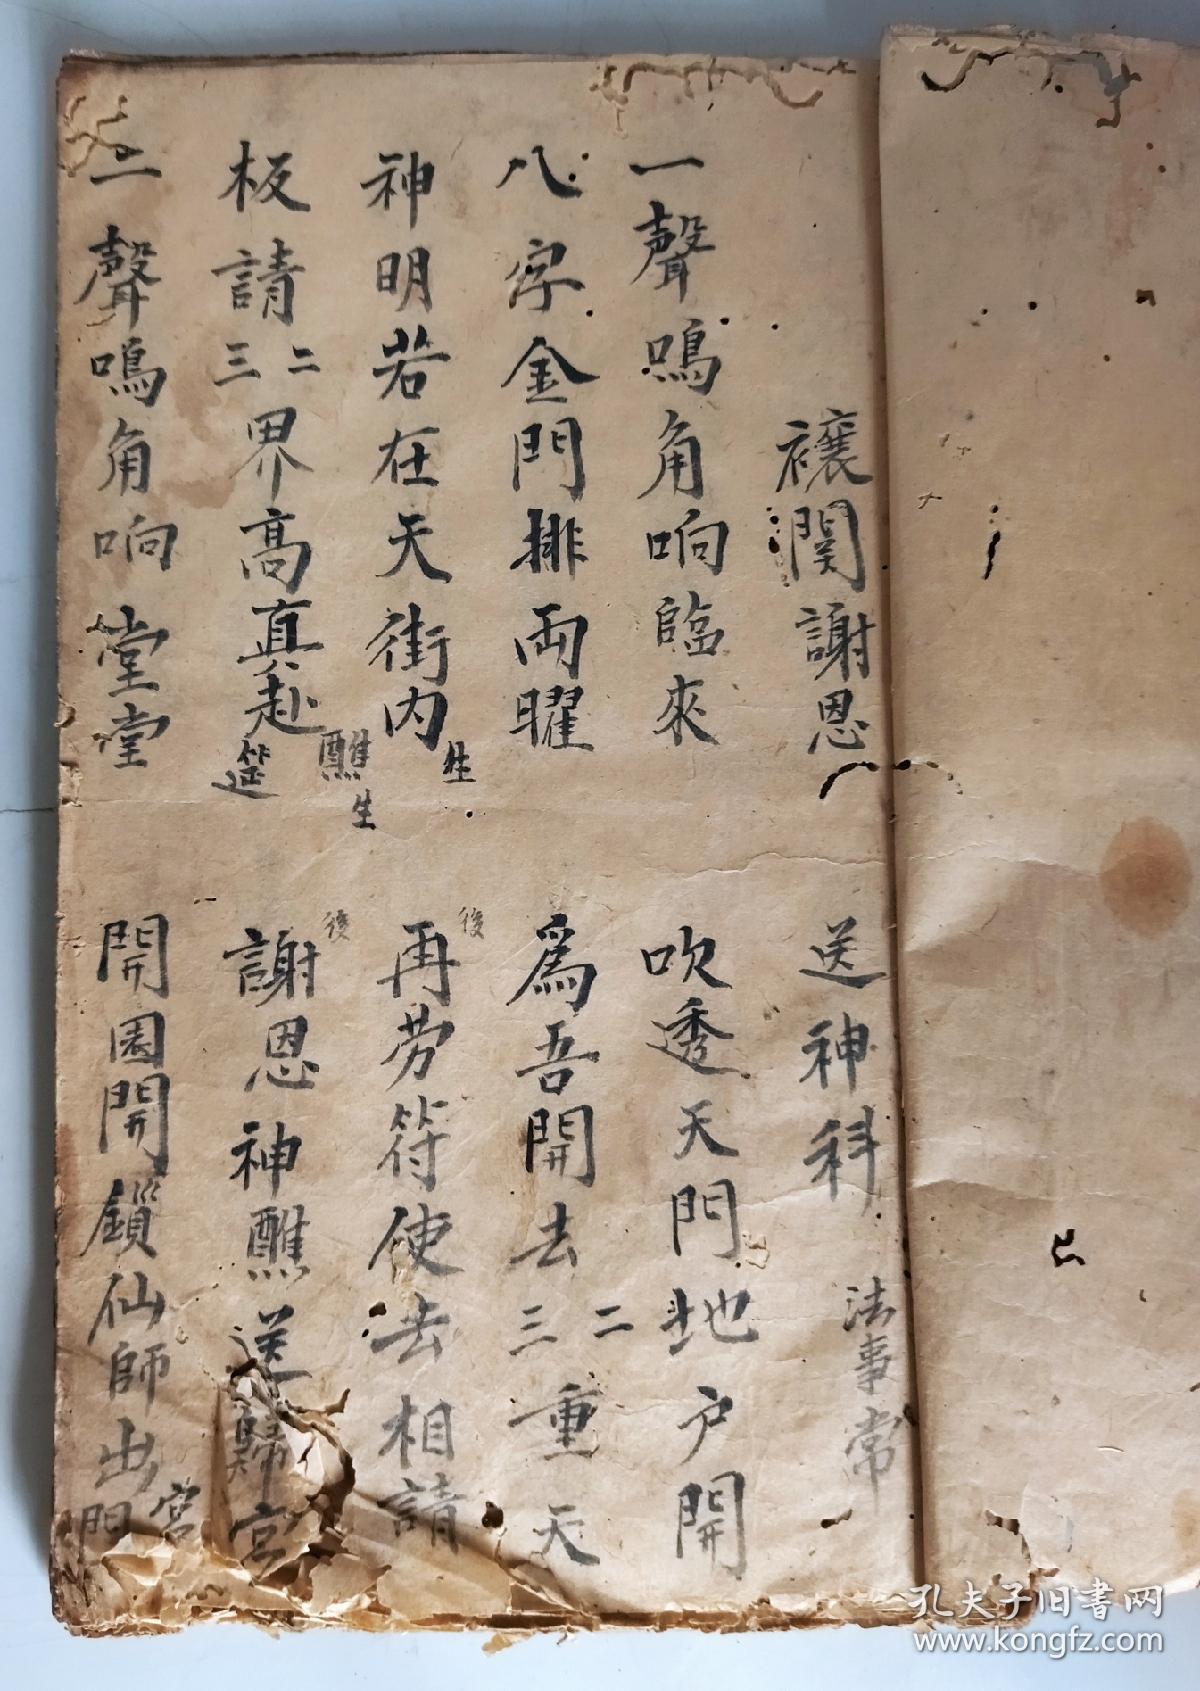 禳関謝恩 送神科 法事常
一聲鳴角响臨來 吹透天門地户開
八字金門排両曜 爲吾開去三二重天
神明若在天街内 再劳符使去相請
生 後
板請三二界高真赴筵 謝恩神醮送歸宮
醮生 後
二聲鳴角响堂堂 開園開鎖仙師出門
宮
孔夫子旧书网
www.kongfz.com